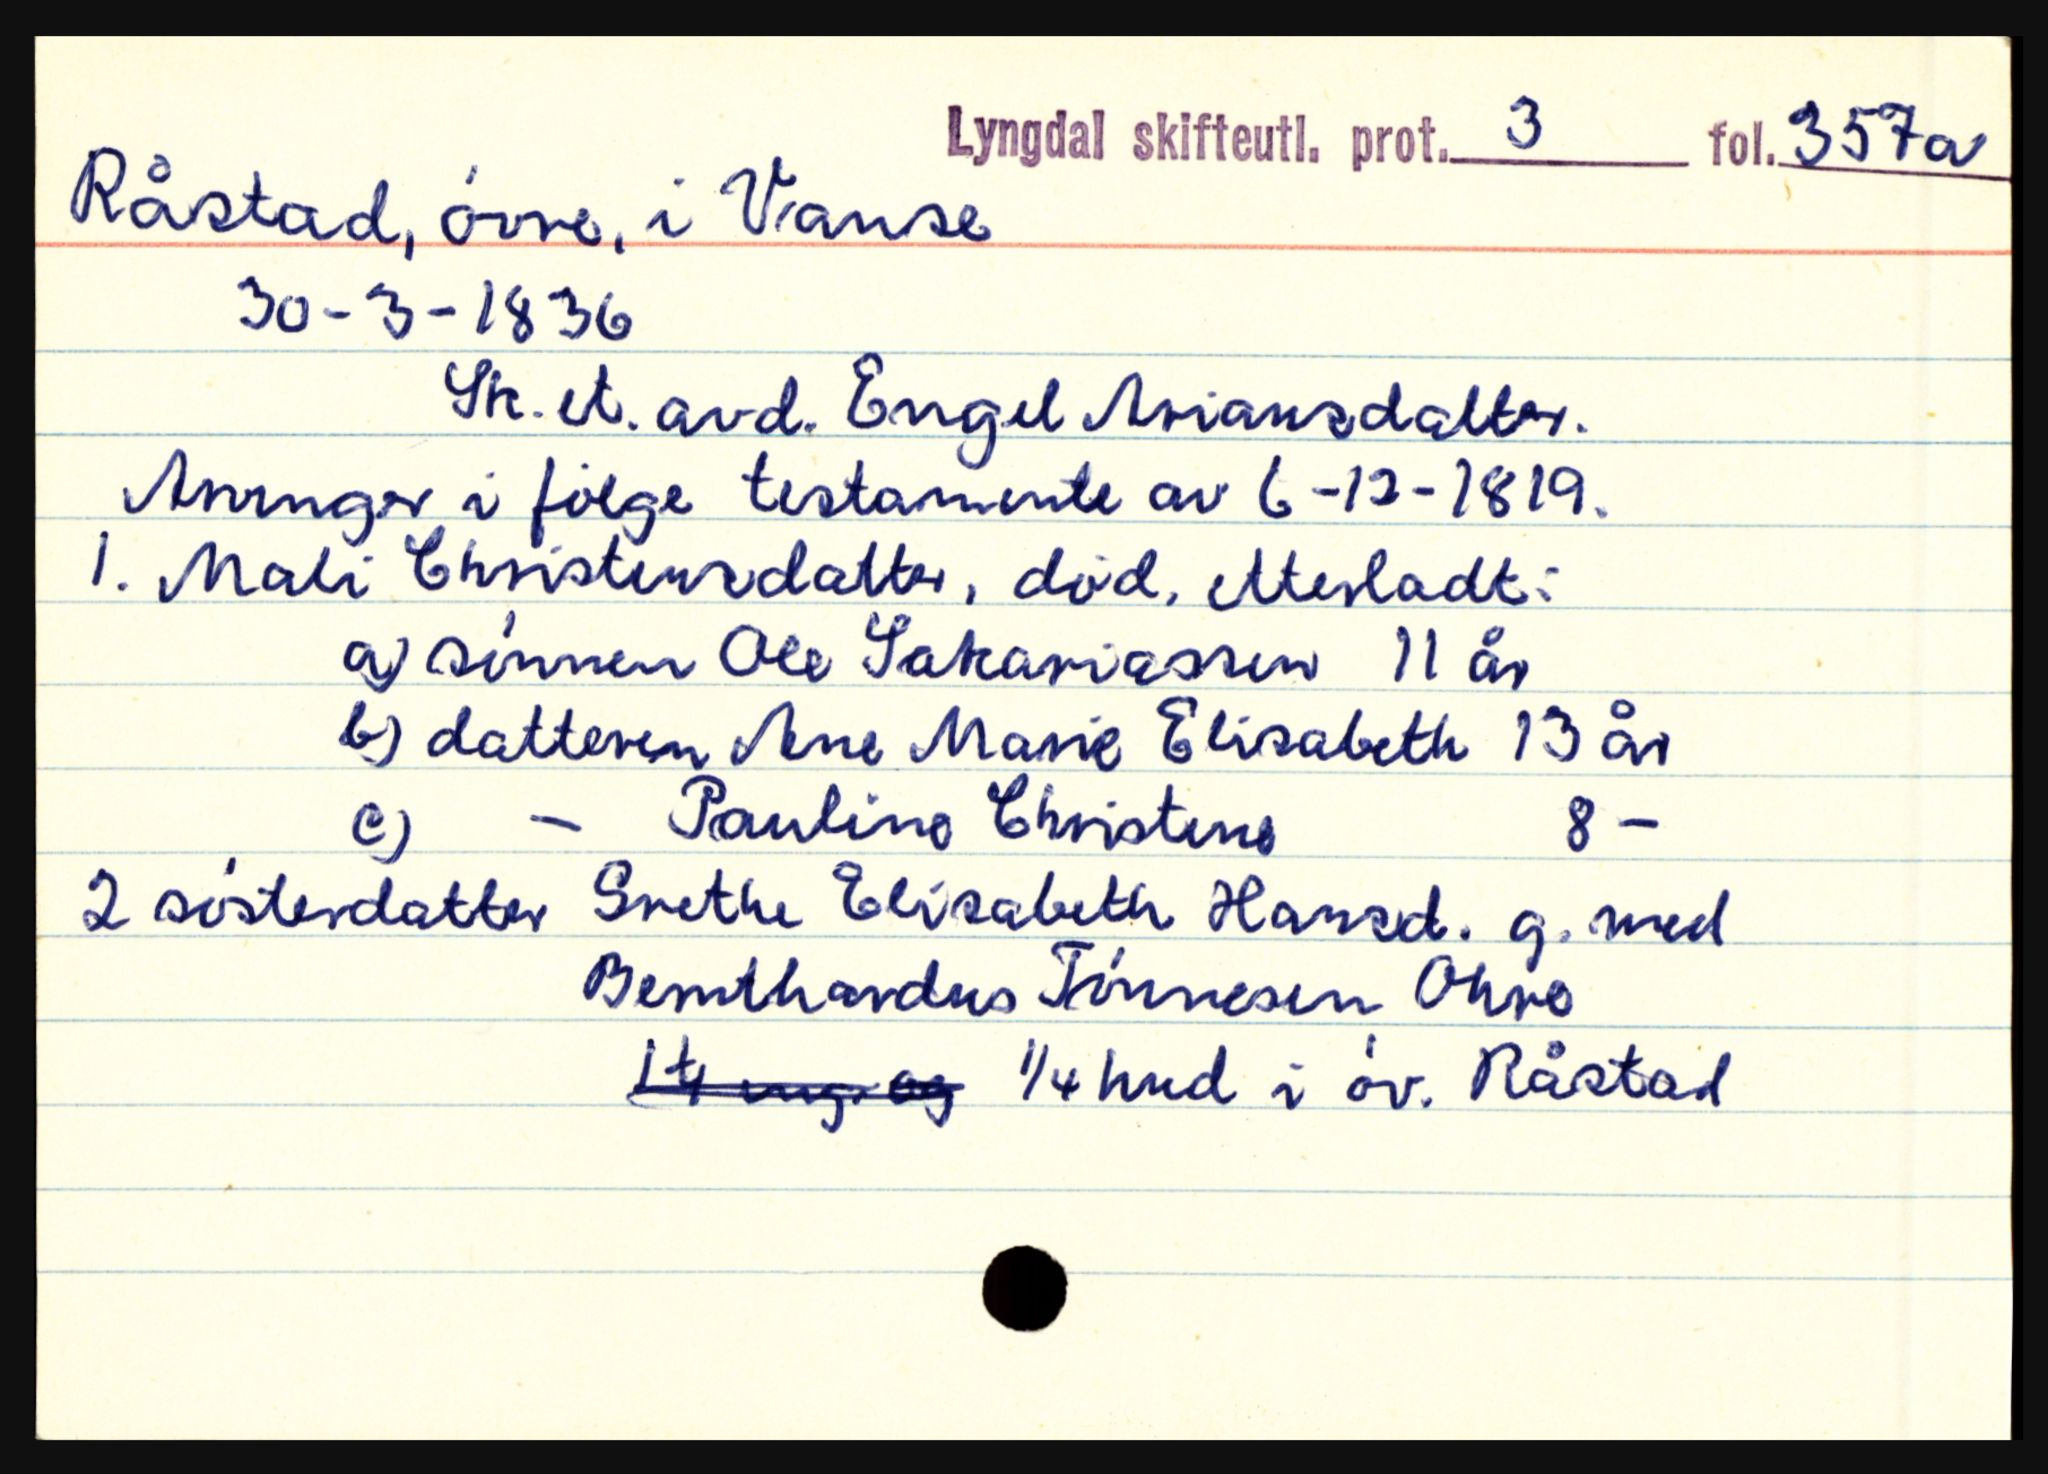 Lyngdal skifteutl. prot. 3 fol. 357a
Råstad, övre, i Vanse
30-3-1836
Sk. et. avd. Engel Ariansdatter.
Arvinger i fölge testamente av 6-12-1819.
1. Mali Christensdatter, död, etterladt:
a) sönnen Ole Sakariassen 11 år
b) datteren Ane Marie Elisabeth 13 år
c) - Pauline Christine 8 -
2 sösterdatter Grethe Elisabeth Hansd. g. med
Bernthardus Tönnesen Ohre
1/4 hud i öv. Råstad